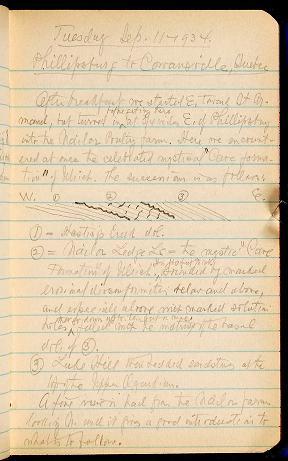 Tuesday Sep. 11 - 1934.
Phillipsburg to Cowansville, Quebec
After breakfast we started E, toward St Ar-
mand, but turned in at E. of Phillipsburg
into the Poultry farm. Here we encount-
ered at once the celebrated mystical "Cave forma-
tion" of Ulrich. The succession is as follows.
W. ① ② ③ E.
① = Hastings Creek dol.
② = Ledge Ls = the mystic "Cave
Formation" of Ulrich, bounded by marked
erosional disconformities below and above,
and especially above with marked solution
holes filled with the material of the basal
dol. of ③.
③ Luke Hill bedded sandstone at the
of the Upper
A fine view is had from the farm
looking and it gives a good introduction to
what is to follow.